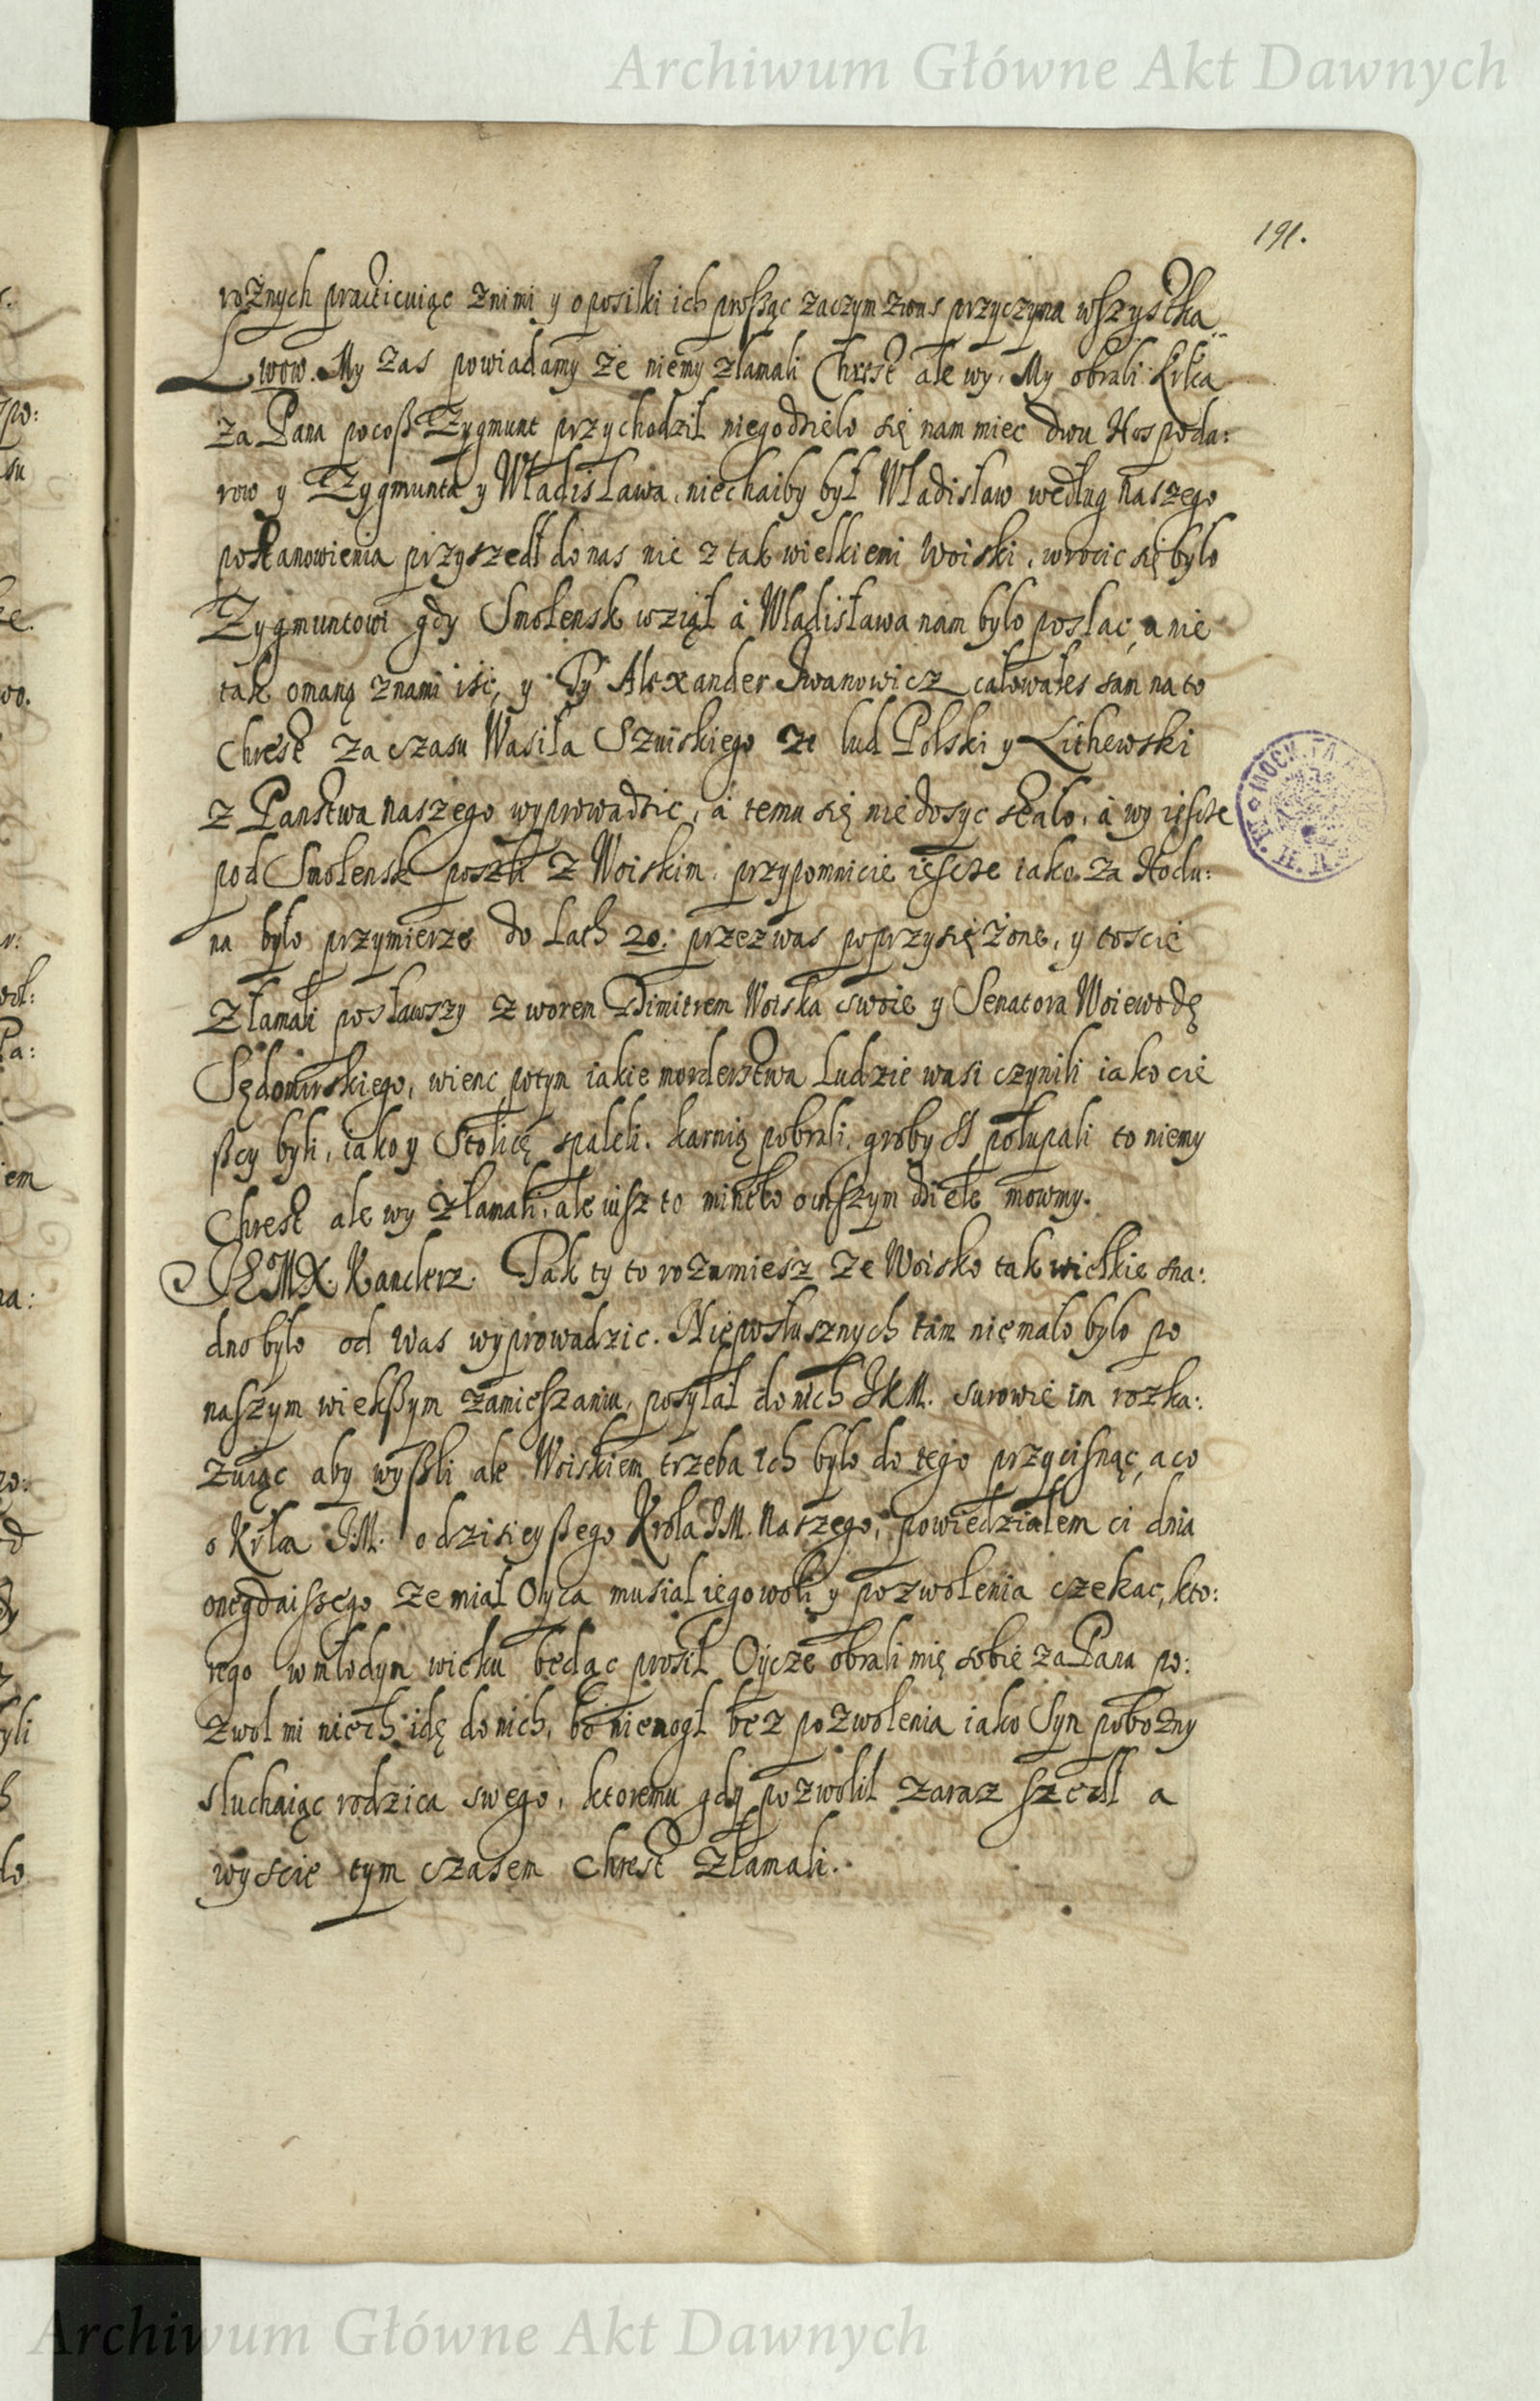 Archiwum Główne Akt Dawnych
191.
rożnych practicuiąc znimi y oposilki ich proßąc zaczym zwas przyczyna wszystka
Lwow. My zas powiadamy że niemy złamali Chrest ale wy. My obrali Krla
za Pana pocoß Zygmunt przychodził niegodzieło się nam miec dwu Hospoda:
row y Zygmunta y Władisława, niechaiby był Władisław według naszego
postanowienia przyszedł do nas nie z tak wielkiemi Woiski, wrocic się było
Zygmuntowi gdy Smolensk wziął á Władisława nam było posłac, a nie
tak omaną znami iśc, y Ty Alexander Iwanowicz całowałes sam na to
Chrest za czasu Wasila Szuiskiego że lud Polski y Lithewski
z Panstwa naszego wyprowadzic, á temu się nie dosyc stało, á wy iescze
pod Smolensk poszli z Woiskim. przypomnicie iescze iako za Hodu:
na było przymierze do Lath 20. przez was poprzysiężone, y toscie
złamali posławszy z worem Dimitrem Woiska swoie y Senatora Woiewodę
Sędomirskiego, wienc potym iakie morderstwa Ludzie wasi czynili iako cie
ßcy byli, iako y Stolicę spaleli. karnią pobrali, groby SS połupali to niemy
Chrest ale wy złamali, ale iusz to mineło owßszym dziele mowmy.
JEMX. Kanclerz. Tak ty to rozumiesz że Woisko tak wielkie sna:
dno było od Was wyprowadzic. Nieposłusznych tam niemało było po
naszym wiekßym zamieszaniu, posyłał do nich JKM. surowie im rozka:
zuiąc aby wyßli ale Woiskiem trzeba ich było do tego przycisnąc, a co
o Krla JM. o dzisieyßego Krola JM. Naszego, powiedziałem ci dnia
onegdaiszego że miał Oyca musiał iego woli y pozwolenia czekac, kto:
rego w młodym wieku będąc prosił Oycze obrali mię sobie za Pana po:
zwol mi niech idę do nich, bo niemogł bez pozwolenia iako Syn pobożny
słuchaiąc rodzica swego, ktoremu gdy pozwolił zaraz szedł a
wyscie tym czasem Chrest złamali.
Archiwum Główne Akt Dawnych